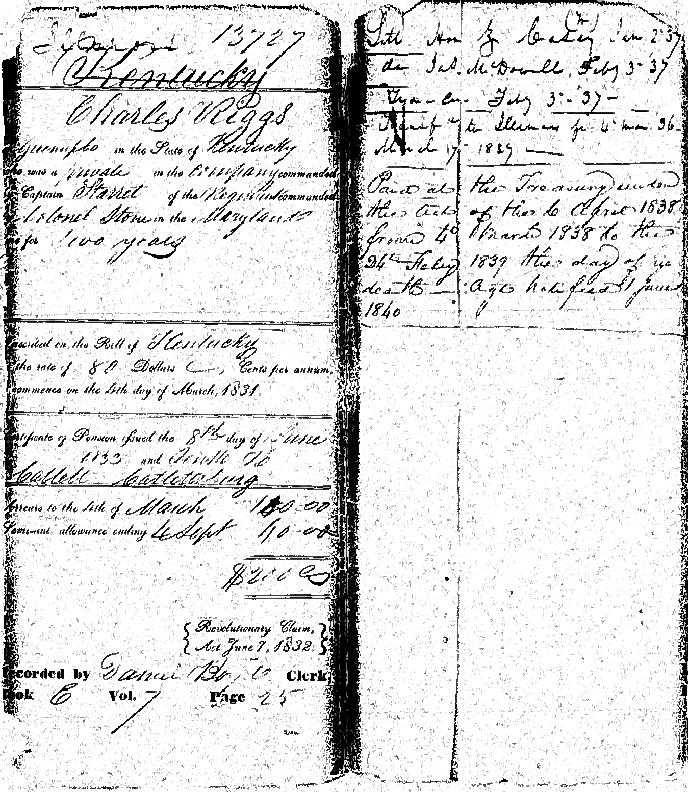 Illinois 13727
Kentucky
Charles Riggs
Greenupbo in the State of Kentucky
who was a private in the Company commanded
Captain Sterret of the Regiment commanded
Colonel Stone in the Maryland
for two years
on the Roll of Kentucky
the rate of 80 Dollars Cents per annum,
commence on the 4th day of March, 1831.
Certificate of Pension issued the 8th day of June
1833 and
Catlett Catlettsburg
Arrears to the 4th of March 160-00
Semi-anl. allowance ending 4 Sept 40-00
$200
{ Revolutionary Claim, }
{ Act June 7, 1832. }
recorded by Clerk,
Book E Vol. 7 Page 25
Lett Hon Z Casey Jan 2 37
do Jas. McDowell, Feby 3-37
Feby 3-37-
to Illinois fr 4 mar 36-
March 17 1837
Paid at the Treasury under
the act of the 6 April 1838
from 4 March 1838 to the
24 Feby 1839 the day of his
death - Agt notified 1 June
1840